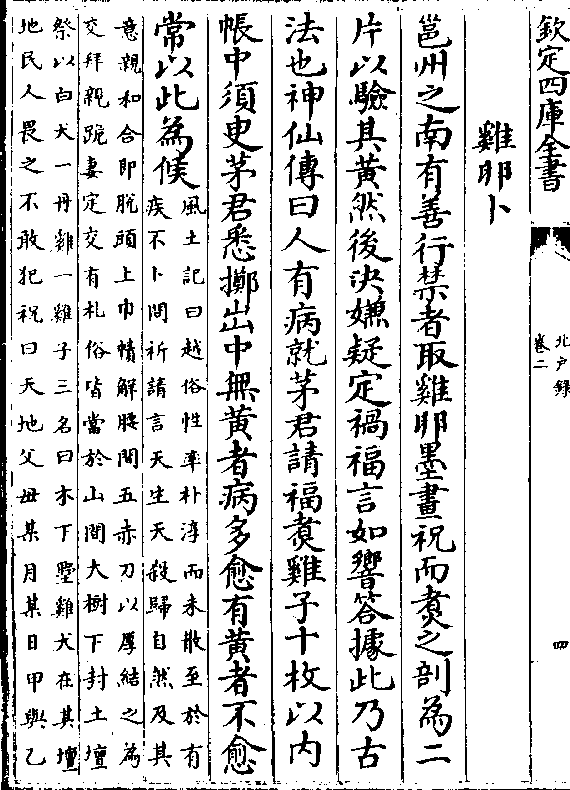 欽定四庫全書
北户録
卷二
四
雞卵卜
邕州之南有善行禁者取雞卵墨畫祝而煑之剖為二
片以驗其黄然後决嫌疑定禍福言如響答據此乃古
法也神仙傳曰人有病就茅君請福煑雞子十枚以内
帳中須臾茅君悉擲出中無黄者病多愈有黄者不愈
常以此為候
風土記曰越俗性率朴淳而未散至於有
疾不卜問祈請言天生天殺歸自然及其
意親和合即脱頭上巾幘解腰間五赤刀以厚結之為
交拜親跪妻定交有札俗皆當於山間大樹下封土壇
祭以白犬一丹雞一雞子三名曰木下壘雞犬在其壇
地民人畏之不敢犯祝曰天地父母某月某日甲與乙